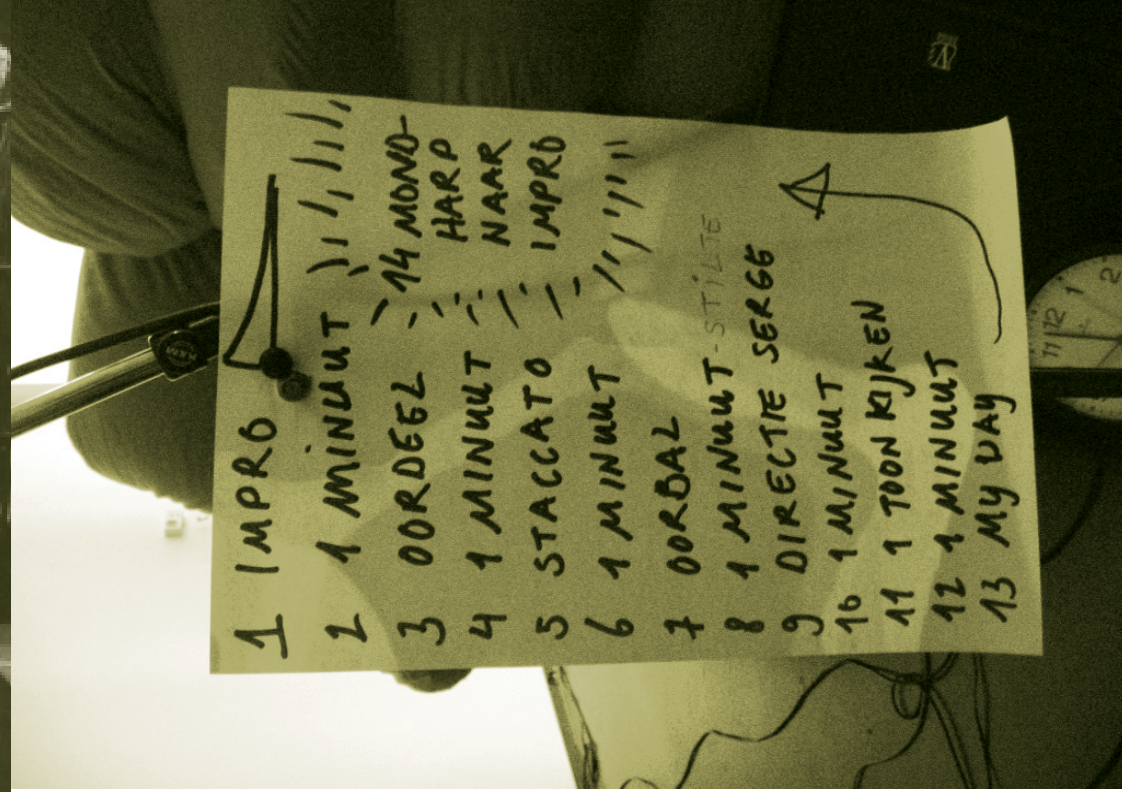 1 IMPRO
2 1 MINUUT
3 OORDEEL
4 1 MINUUT
5 STACCATO
6 1 MINUUT
7 OORBAL
8 1 MINUUT - STILTE
9 DIRECTE SERGE
10 1 MINUUT
11 1 TOON KIJKEN
12 1 MINUUT
13 MY WAY
14 MOND-
HARP
NAAR
IMPRO
K&M
11 12 1 2